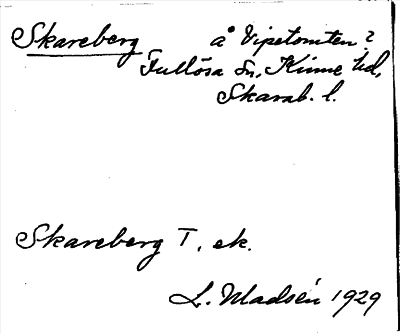 Skareberg å Vipetomten?
Fullösa Sn, Kinne hd,
Skarab. l.
Skareberg T. ek.
L. Madsén 1929